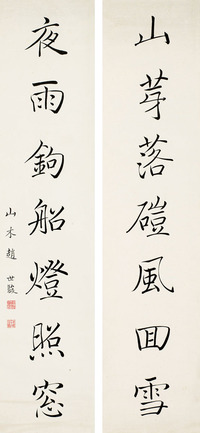 山芽落磑風囬雪
夜雨鉤船燈照窓
山木趙世駿